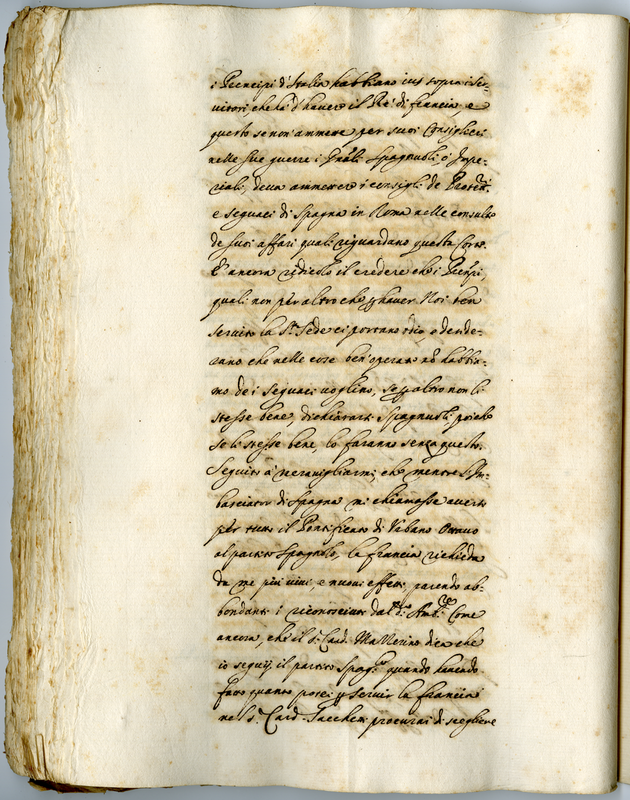 i Prencipi d'Italia habbiano ius sopra i Ser-
uitori, che hà d'hauere il Rè di francia, e
questo se non ammette per suoi Consiglieri
nelle sue guerre i Gnãli Spagnuoli, ò Impe-
riali, deua ammettere i consigli de
e seguaci di Spagna in Roma nelle consulte
de suoi affari quali riguardano questa Corte.
È ancora ridicolo il credere che i Prencipi
quali non per altro che p hauer Noi ben
seruito la Sta. Sede ci portano odio, e deside-
rano che nelle cose ben operate nõ habbia-
mo de i seguaci uoglino, se p altro non li
stesse bene, dichiararsi Spagnuoli, poiche
se li stesse bene, lo faranno senza questo.
Seguito à merauigliarmi, che mentre l'Im-
basciator di Spagna mi chiamasse auerso
per tutto il Pontificato di Vrbano Ottauo
al partito Spagnolo, la francia richieda
da me più uiui, e nuoui effetti, parendo ab-
bondanti i riconosciuti dal do. Ambre. Come
ancora, che il Sr. Card. Matterino dica che
io seguij il partito Spago. quando hauendo
fatto quanto potei p seruir la francia
nel Sr. Card. Sacchetti procurai di scegliere